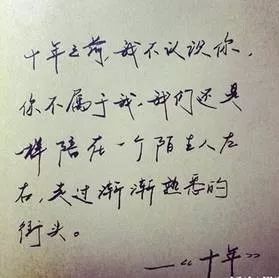 十年之前，我不认识你，
你不属于我，我们还是一
样陪在一个陌生人左
右，走过渐渐熟悉的
街头。
——《十年》